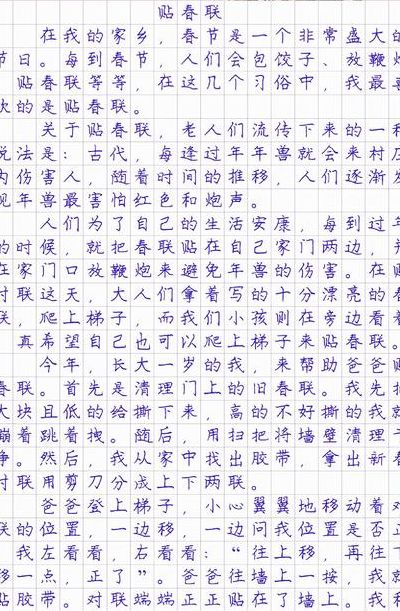 贴春联
在我的家乡，春节是一个非常盛大的
节日。每到春节，人们会包饺子、放鞭炮
贴春联等等，在这几个习俗中，我最喜
欢的是贴春联。
关于贴春联，老人们流传下来的一种
说法是：古代，每逢过年年兽就会来村庄
为伤害人，随着时间的推移，人们逐渐发
现年兽最害怕红色和炮声。
人们为了自己的生活安康，每到过年
的时候，就把春联贴在自己家门两边，并
在家门口放鞭炮来避免年兽的伤害。在贴
对联这天，大人们拿着写的十分漂亮的春
联，爬上梯子，而我们小孩则在旁边看着
真希望自己也可以爬上梯子来贴春联。
今年，长大一岁的我，来帮助爸爸贴
春联。首先是清理门上的旧春联。我先把
大块且低的给撕下来，高的不好撕的我就
蹦着跳着拽。随后，用扫把将墙壁清理干
净。然后，我从家中找出胶带，拿出新春
对联用剪刀分成上下两联。
爸爸登上梯子，小心翼翼地移动着对
联的位置，一边移，一边问我位置是否正
我左看看，右看看：“往上移，再往下
移一点，正了”。爸爸往墙上一按，我就
贴胶带。对联端端正正贴在了墙上。我